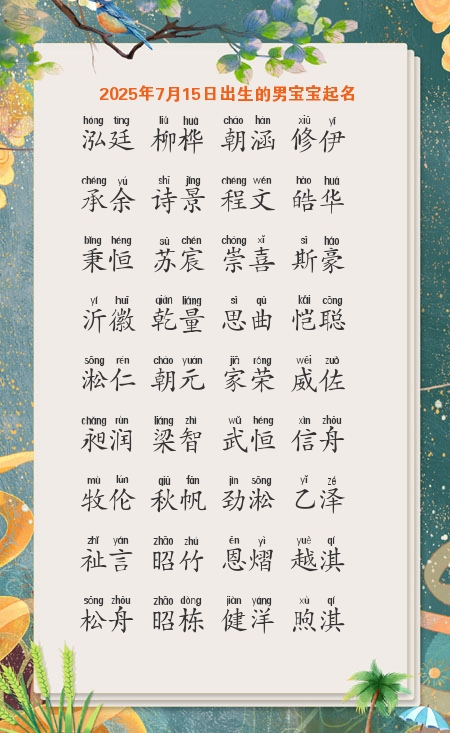 2025年7月15日出生的男宝宝起名
hóng tíng liǔ huà cháo hán xiū yī
泓廷 柳桦 朝涵 修伊
chéng yú shī jǐng chéng wén hào huá
承余 诗景 程文 皓华
bǐng héng sū chén chóng xǐ sī háo
秉恒 苏宸 崇喜 斯豪
yí huī qián liáng sī qǔ kǎi cōng
沂徽 乾量 思曲 恺聪
sōng rén cháo yuán jiā róng wēi zuǒ
淞仁 朝元 家荣 威佐
chǎng rùn liáng zhì wǔ héng xìn zhōu
昶润 梁智 武恒 信舟
mù lún qiū fān jìn sōng yǐ zé
牧伦 秋帆 劲淞 乙泽
zhǐ yán zhāo zhú ēn yì yuè qí
祉言 昭竹 恩熠 越淇
sōng zhōu zhāo dòng jiàn yáng xù qí
松舟 昭栋 健洋 煦淇